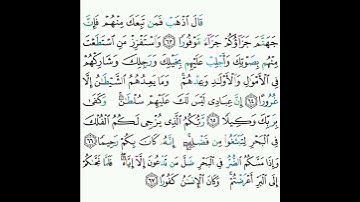 قَالَ ٱذْهَبْ فَمَن تَبِعَكَ مِنْهُمْ فَإِنَّ
جَهَنَّمَ جَزَآؤُكُمْ جَزَآءً مَّوْفُورًا ﴿٦٣﴾ وَٱسْتَفْزِزْ مَنِ ٱسْتَطَعْتَ
مِنْهُم بِصَوْتِكَ وَأَجْلِبْ عَلَيْهِم بِخَيْلِكَ وَرَجِلِكَ وَشَارِكْهُمْ
فِى ٱلْأَمْوَٰلِ وَٱلْأَوْلَٰدِ وَعِدْهُمْ ۚ وَمَا يَعِدُهُمُ ٱلشَّيْطَٰنُ إِلَّا
غُرُورًا ﴿٦٤﴾ إِنَّ عِبَادِى لَيْسَ لَكَ عَلَيْهِمْ سُلْطَٰنٌ ۚ وَكَفَىٰ
بِرَبِّكَ وَكِيلًا ﴿٦٥﴾ رَّبُّكُمُ ٱلَّذِى يُزْجِى لَكُمُ ٱلْفُلْكَ
فِى ٱلْبَحْرِ لِتَبْتَغُوا۟ مِن فَضْلِهِۦٓ ۚ إِنَّهُۥ كَانَ بِكُمْ رَحِيمًا ﴿٦٦﴾
وَإِذَا مَسَّكُمُ ٱلضُّرُّ فِى ٱلْبَحْرِ ضَلَّ مَن تَدْعُونَ إِلَّآ إِيَّاهُ ۖ فَلَمَّا نَجَّىٰكُمْ
إِلَى ٱلْبَرِّ أَعْرَضْتُمْ ۚ وَكَانَ ٱلْإِنسَٰنُ كَفُورًا ﴿٦٧﴾